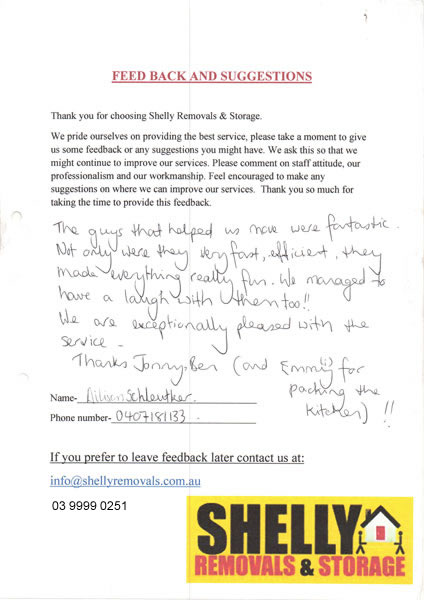 FEED BACK AND SUGGESTIONS
Thank you for choosing Shelly Removals & Storage.
We pride ourselves on providing the best service, please take a moment to give
us some feedback or any suggestions you might have. We ask this so that we
might continue to improve our services. Please comment on staff attitude, our
professionalism and our workmanship. Feel encouraged to make any
suggestions on where we can improve our services. Thank you so much for
taking the time to provide this feedback.
The guys that helped us move were fantastic.
Not only were they very fast, efficient, they
made everything really fun. We managed to
have a laugh with them too!!
We are exceptionally pleased with the
service -
Thanks Jonny, Ben (and Emmy(i) for
packing the
Kitchen) !!
Name- Schleutker
Phone number- 0407181133.
If you prefer to leave feedback later contact us at:
info@shellyremovals.com.au
03 9999 0251
SHELLY
REMOVALS & STORAGE